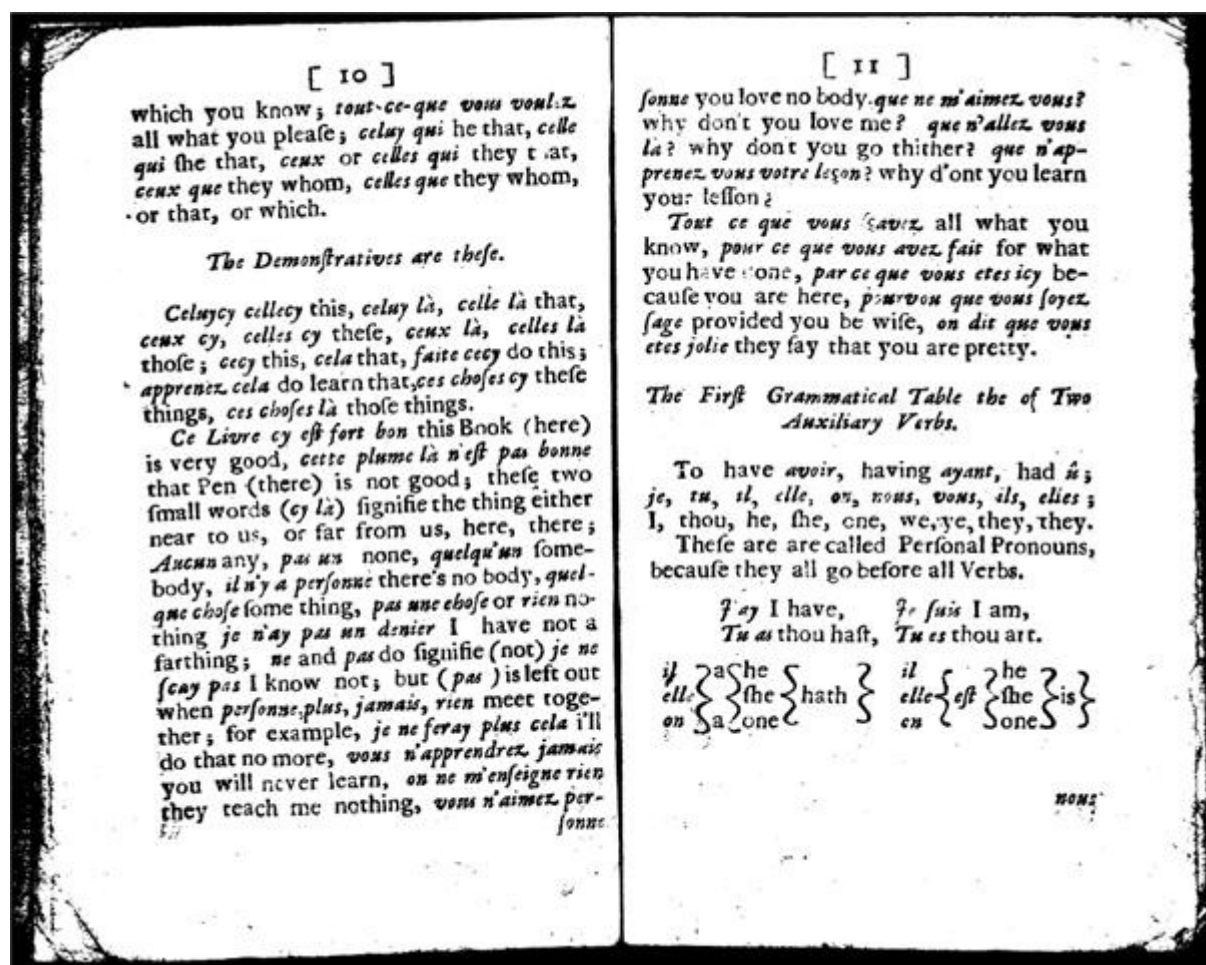 [ 10 ]
which you know; tout-ce-que vous voulez
all what you pleaſe; celuy qui he that, celle
qui ſhe that, ceux or celles qui they that,
ceux que they whom, celles que they whom,
or that, or which.
The Demonſtratives are theſe.
Celuycy cellecy this, celuy là, celle là that,
ceux cy, celles cy theſe, ceux là, celles là
thoſe; cecy this, cela that, faite cecy do this;
apprenez cela do learn that, ces choſes cy theſe
things, ces choſes là thoſe things.
Ce Livre cy eſt fort bon this Book (here)
is very good, cette plume là n'eſt pas bonne
that Pen (there) is not good; theſe two
ſmall words (cy là) ſignifie the thing either
near to us, or far from us, here, there;
Aucun any, pas un none, quelqu'un ſome-
body, il n'y a perſonne there's no body, quel-
que choſe ſome thing, pas une choſe or rien no-
thing je n'ay pas un denier I have not a
farthing; ne and pas do ſignifie (not) je ne
ſcay pas I know not; but (pas ) is left out
when perſonne, plus, jamais, rien meet toge-
ther; for example, je ne feray plus cela i'll
do that no more, vous n'apprendrez jamais
you will never learn, on ne m'enſeigne rien
they teach me nothing, vous n'aimez per-
ſonne
[ 11 ]
ſonne you love no body. que ne m'aimez vous?
why don't you love me? que n'allez vous
là? why dont you go thither? que n'ap-
prenez vous votre leçon? why d'ont you learn
your leſſon?
Tout ce que vous ſçavez all what you
know, pour ce que vous avez fait for what
you have done, par ce que vous etes icy be-
cauſe you are here, pourvou que vous ſoyez
ſage provided you be wiſe, on dit que vous
etes jolie they ſay that you are pretty.
The Firſt Grammatical Table the of Two
Auxiliary Verbs.
To have avoir, having ayant, had û;
je, tu, il, elle, on, nous, vous, ils, elles;
I, thou, he, ſhe, one, we, ye, they, they.
Theſe are are called Perſonal Pronouns,
becauſe they all go before all Verbs.
J'ay I have, Je ſuis I am,
Tu as thou haſt, Tu es thou art.
il } a { he } il } he }
elle } { ſhe } hath } elle { eſt } ſhe } is }
on } a { one } en } one }
nous